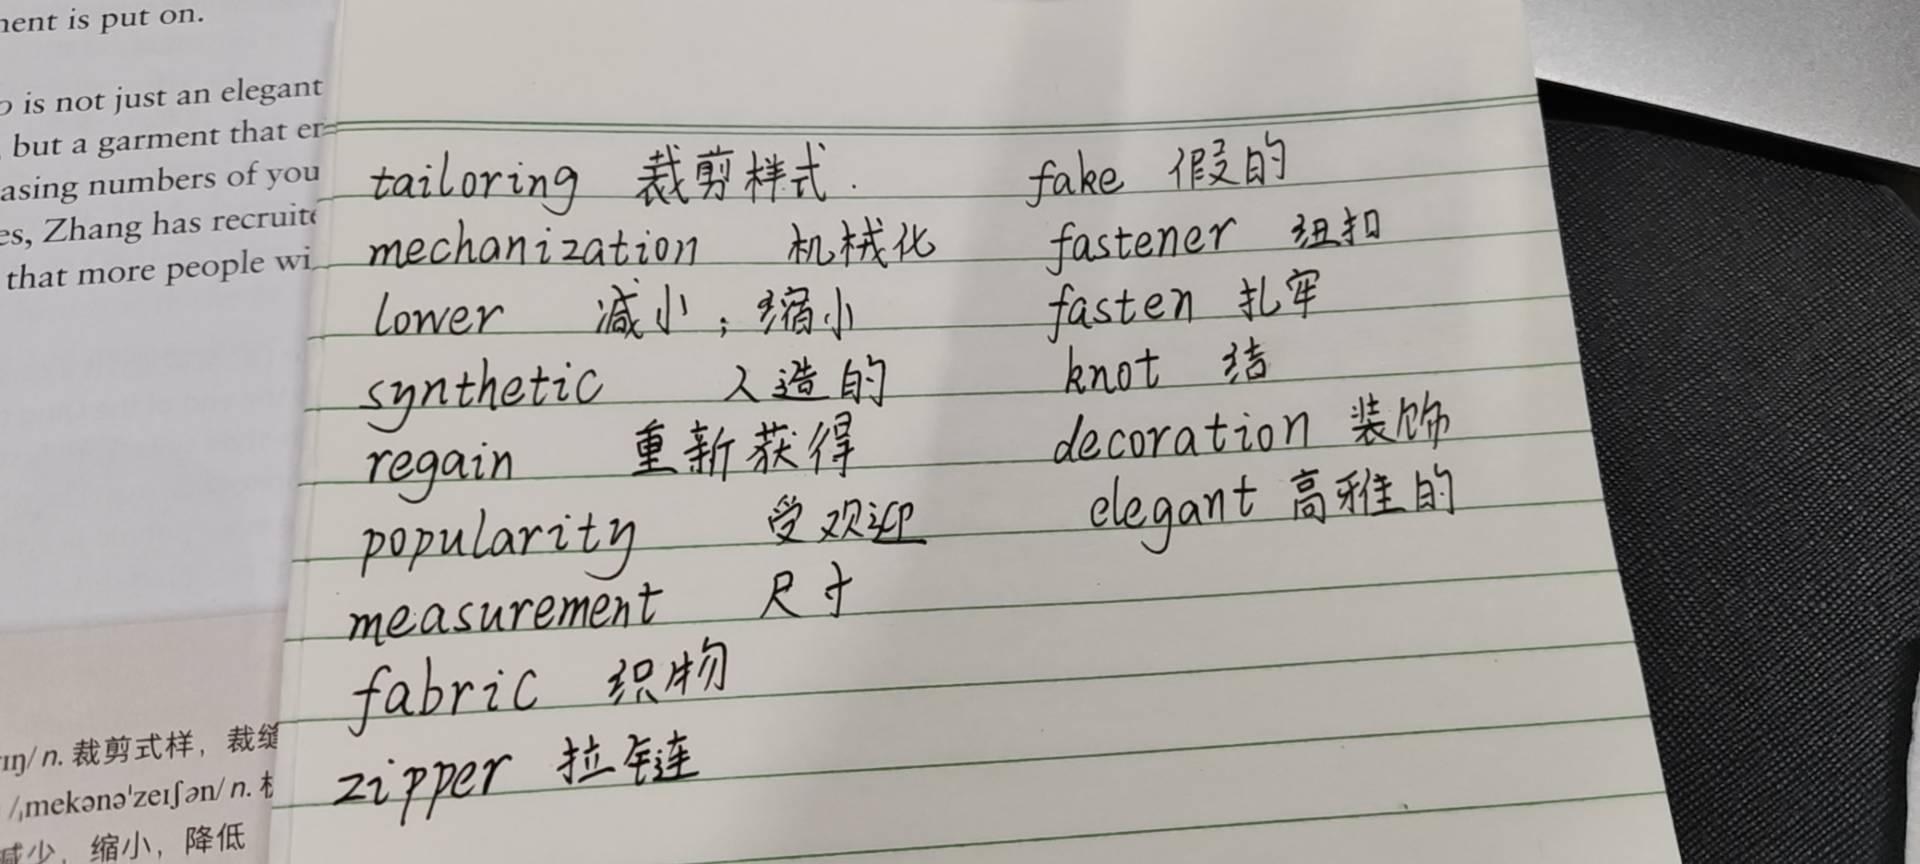 nent is put on.
o is not just an elegant
but a garment that er
asing numbers of you
es, Zhang has recruite
that more people wi
tailoring 裁剪样式.
mechanization 机械化
lower 减小；缩小
synthetic 人造的
regain 重新获得
popularity 受欢迎
measurement 尺寸
fabric 织物
zipper 拉链
fake 假的
fastener 纽扣
fasten 扎牢
knot 结
decoration 装饰
elegant 高雅的
ɪŋ/ n. 裁剪式样，裁缝
/ˌmekənəˈzeɪʃən/ n. 机
减少，缩小，降低